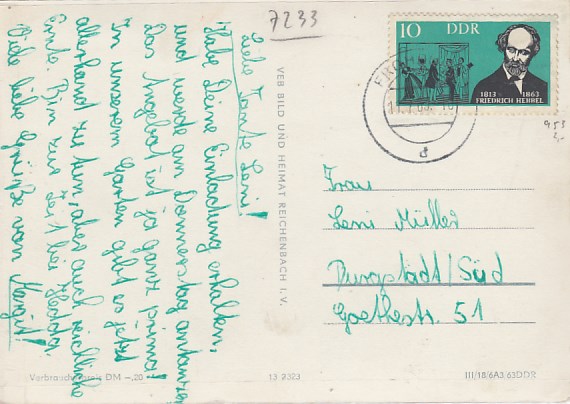 7233
Liebe Tante Leni!
Habe Deine Einladung erhalten,
und werde am Donnerstag antanzen
Das Angebot ist ja ganz prima!
In unserem Garten gibt es jetzt
allerhand zu tun, aber auch reichliche
Ernte. Bin zur Zeit bei
Viele liebe Grüße von Margit!
VEB BILD UND HEIMAT REICHENBACH I. V.
10 DDR
1813 1863
FRIEDRICH HEBBEL
d
953
Frau
Leni Müller
Burgstädt/Süd
Goethestr. 51
Verbraucherpreis DM –,20
13 2323
III/18/6A3/63DDR